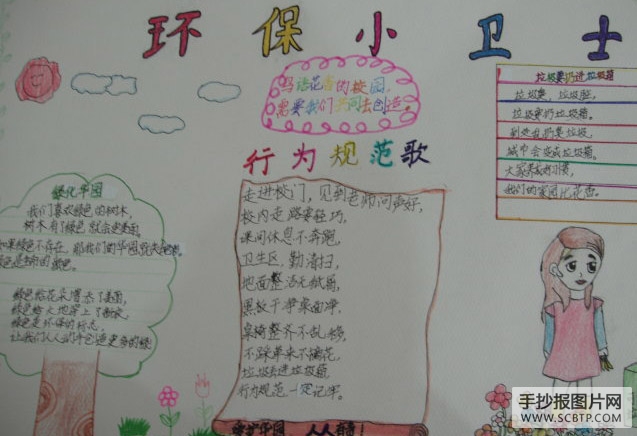 环保小卫士
鸟语花香的校园,
需要我们共同去创造。
垃圾要扔进垃圾箱
垃圾多,垃圾脏,
垃圾要扔垃圾箱。
到处乱扔垃圾,
城市会变成垃圾箱。
大家养成好习惯,
我们的家园比花香。
行为规范歌
走进校门,见到老师问声好,
校内走路要轻巧,
课间休息不奔跑,
卫生区,勤清扫,
地面整洁无纸屑,
黑板干净桌面净,
桌椅整齐不乱
不踩草来不摘花,
垃圾丢进垃圾箱
行为规范一定记牢。
爱护校园 人人有责
绿化校园
我们喜欢绿色的树木,
树木有了绿色就会更美丽。
如果绿色不存在,那我们的校园就
色是
绿色给花朵增添了美丽,
绿色给大地穿上了新衣,
绿色是环保的标志,
让我们人人们手创造更多的绿
手抄报图片网
WWW.SCBTP.COM